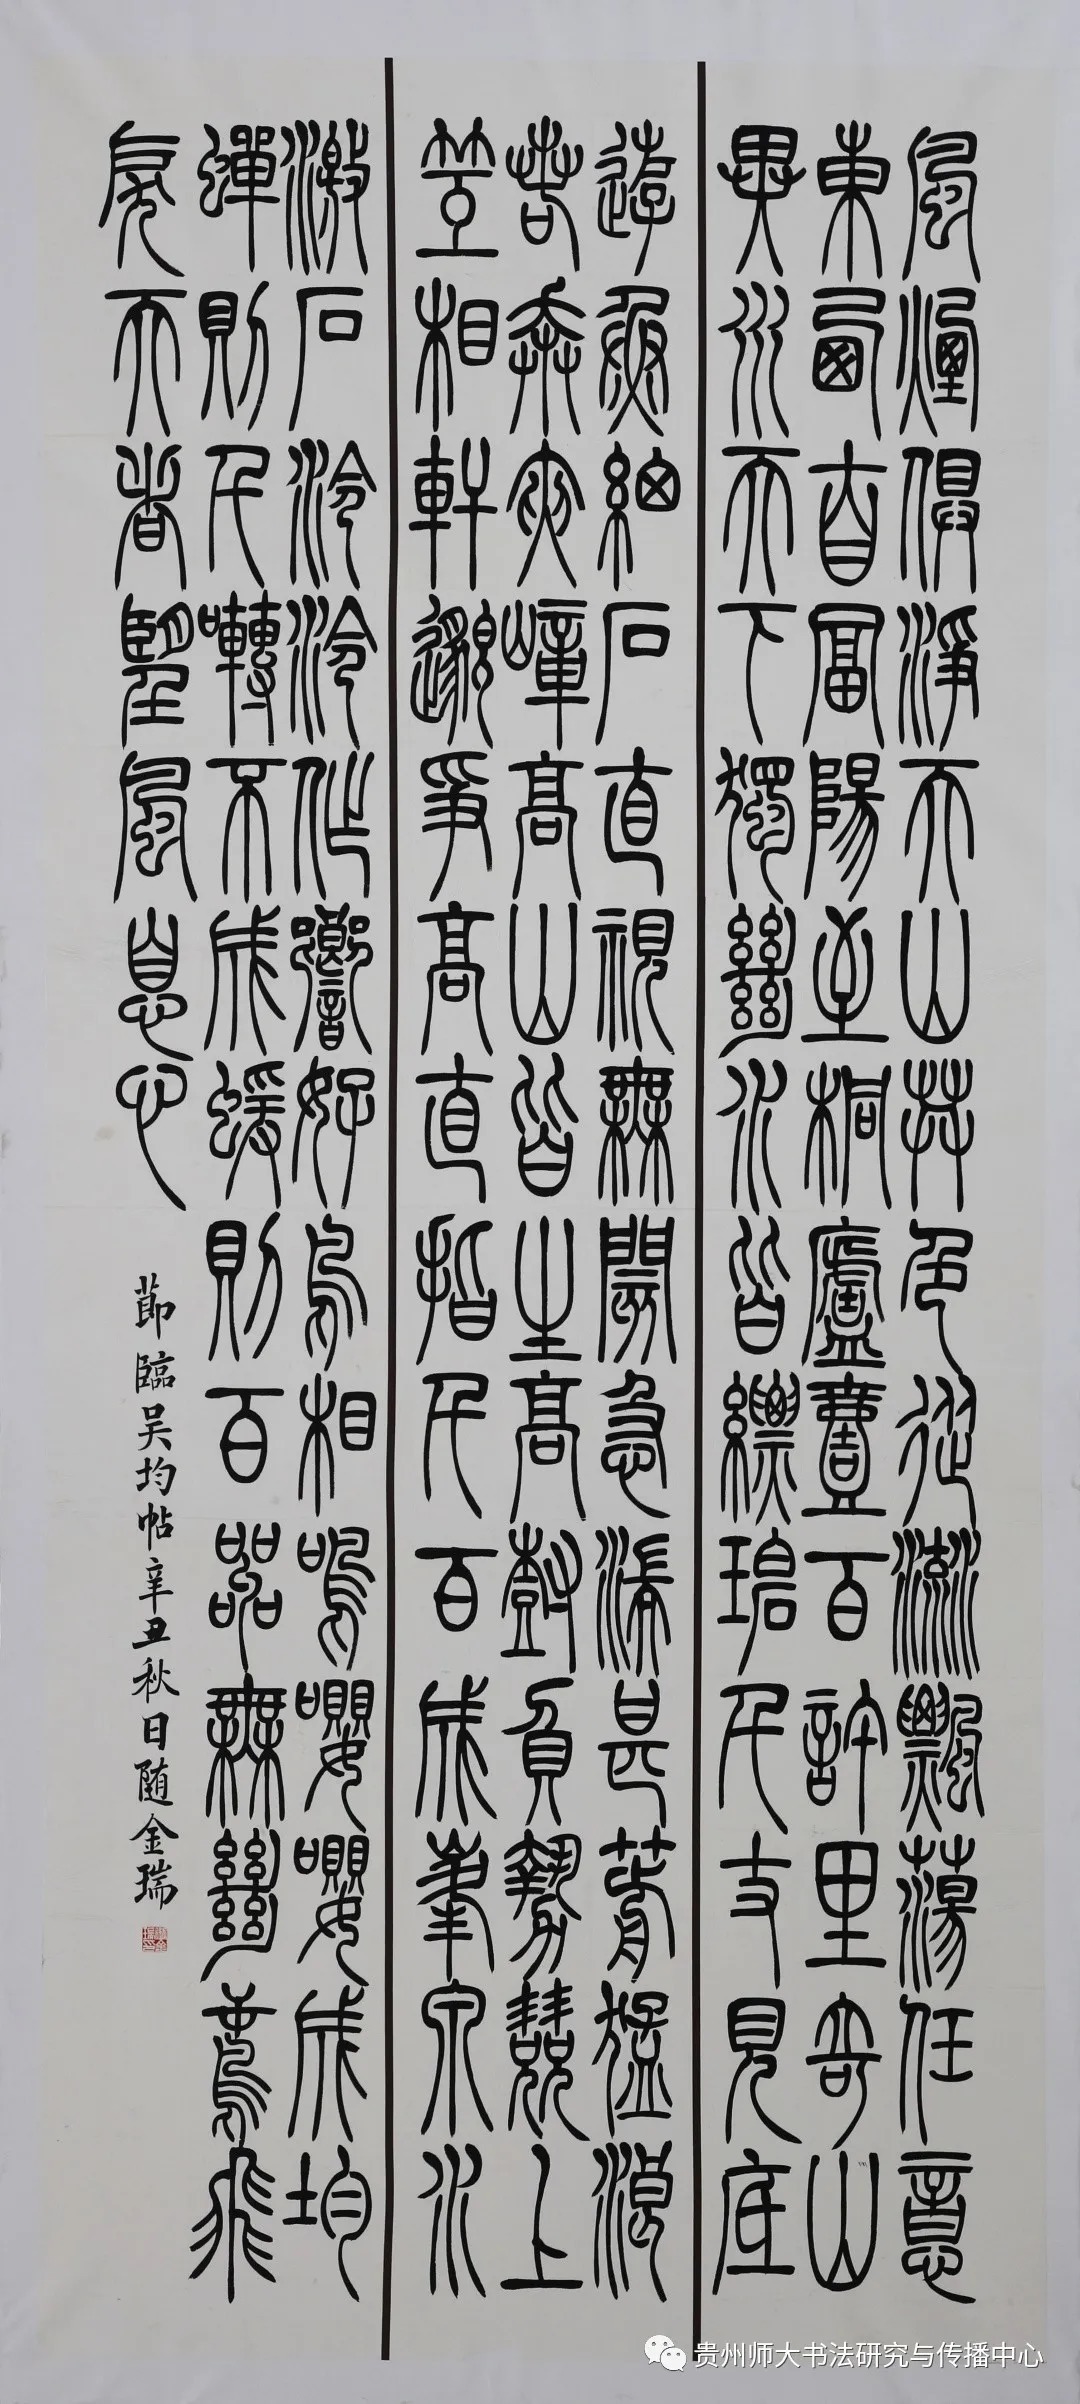 風煙俱淨天山共色從流飄蕩任意
東西自富陽至桐廬壹百許里奇山
異水天下獨絕水皆縹碧千丈見底
遊魚細石直視無閡急湍甚箭猛浪
若奔夾嶂高山皆生高樹負勢競上
互相軒邈爭高直指千百成峯泉水
激石泠泠作響好鳥相鳴嚶嚶成均
蟬則千囀不成蝯則百嘂無絕鳶飛
戾天者望風息心
節臨吴均帖辛丑秋日随金瑞
贵州师大书法研究与传播中心